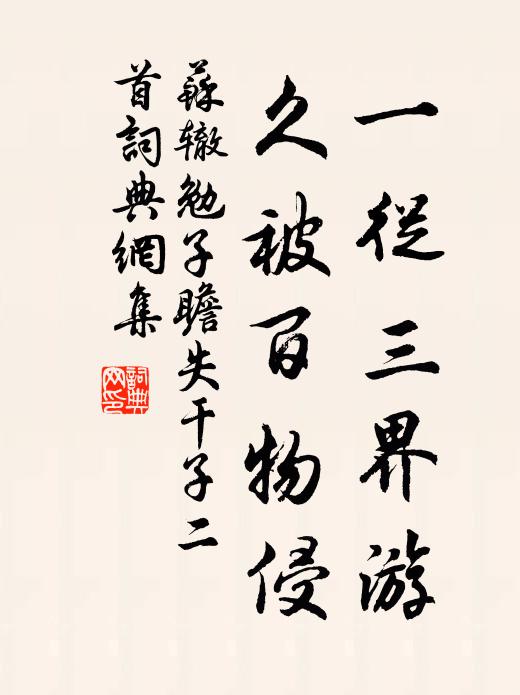 一從三界游
久被百物侵
蘇辙勉子瞻失干子二
首詞典網集
詞典
网印